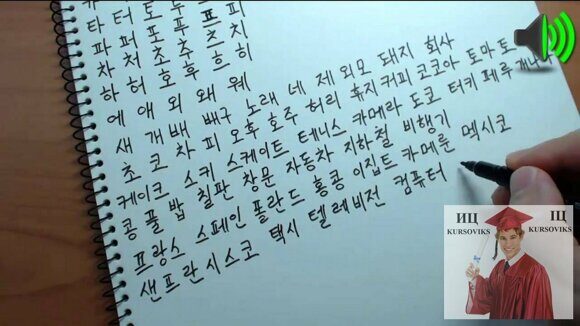 타 터 토 투 트 티
파 퍼 포 푸 프 피
차 처 초 추 츠 치
하 허 호 후 흐 히
예 애 외 왜 웨
새 개 배 배구 노래 네 제 외모 돼지 회사
초 코 차 피 오후 호주 허리 휴지 커피 코코아 토마토
케이크 스키 스케이트 테니스 카메라 도쿄 터키 페루
콩 풀 밥 칠판 창문 자동차 지하철 비행기
프랑스 스페인 폴란드 홍콩 이집트 카메룬 멕시코
샌프란시스코 택시 텔레비전 컴퓨터
ИЦ KURSOVIKS
ІЦ KURSOVIKS